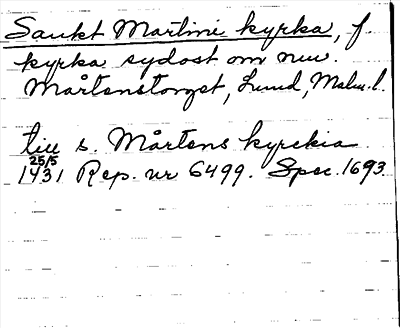 Sankt Martini kyrka, f.
kyrka sydost om nuv.
Mårtenstorget, Lund, Malm. l.
till s. Mårtens kyrckia
25/5
1431 Rep. nr 6499. Spec. 1693